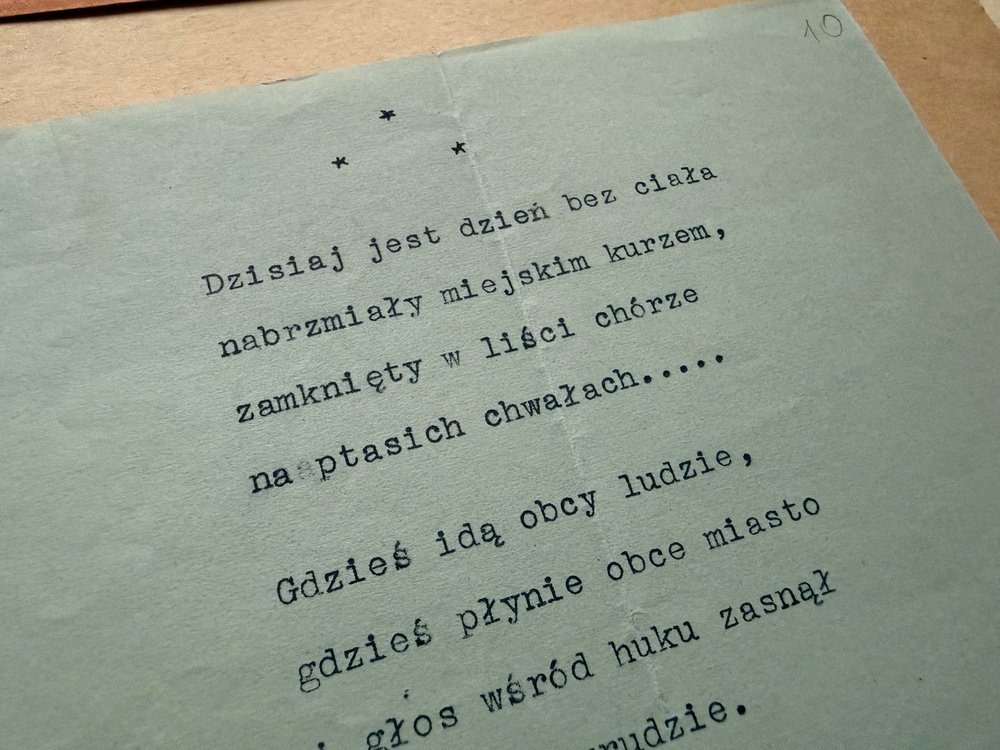 10
* * *
Dzisiaj jest dzień bez ciała
nabrzmiały miejskim kurzem,
zamknięty w liści chórze
na ptasich chwałach.....
Gdzieś idą obcy ludzie,
gdzieś płynie obce miasto
głos wśród huku zasnął